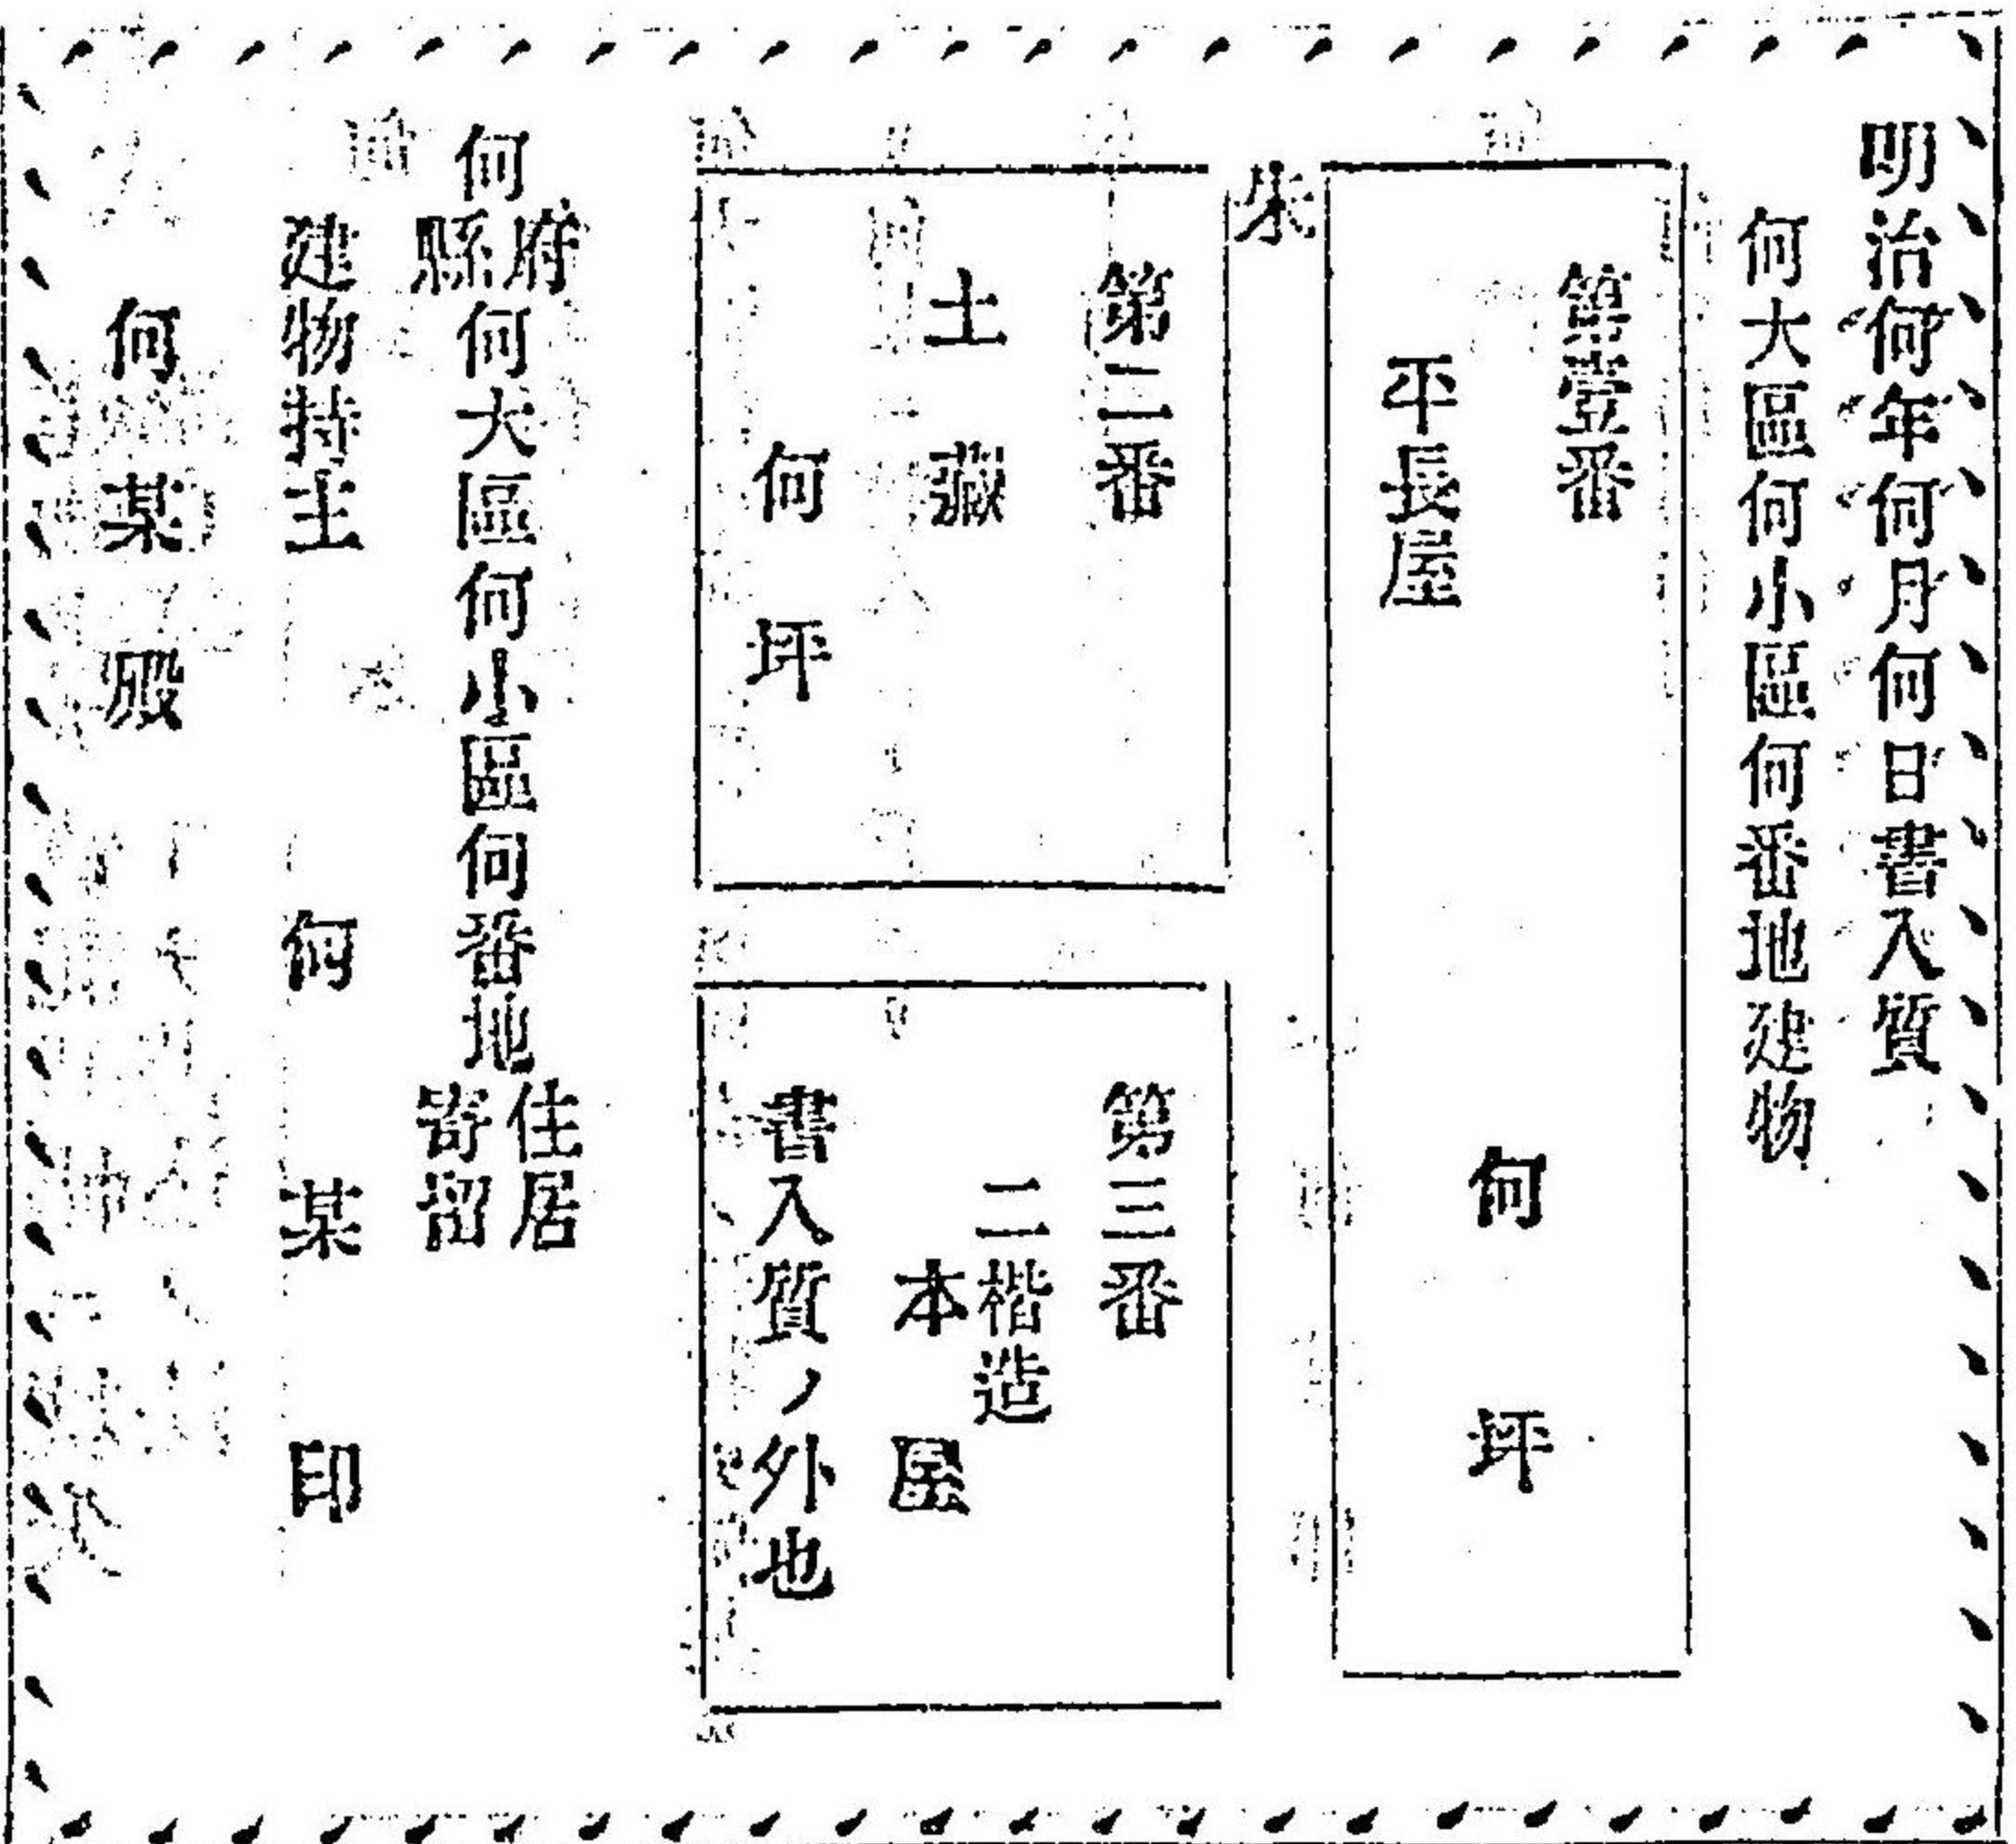 明治何年何月何日書入質
何大區何小區何番地建物
第壹番
平長屋
何坪
朱
第二番
土藏
何坪
第三番
二楷造
本屋
書入質ノ外也
何府縣何大區何小區何番地住居寄留
建物持主 何某印
何某殿